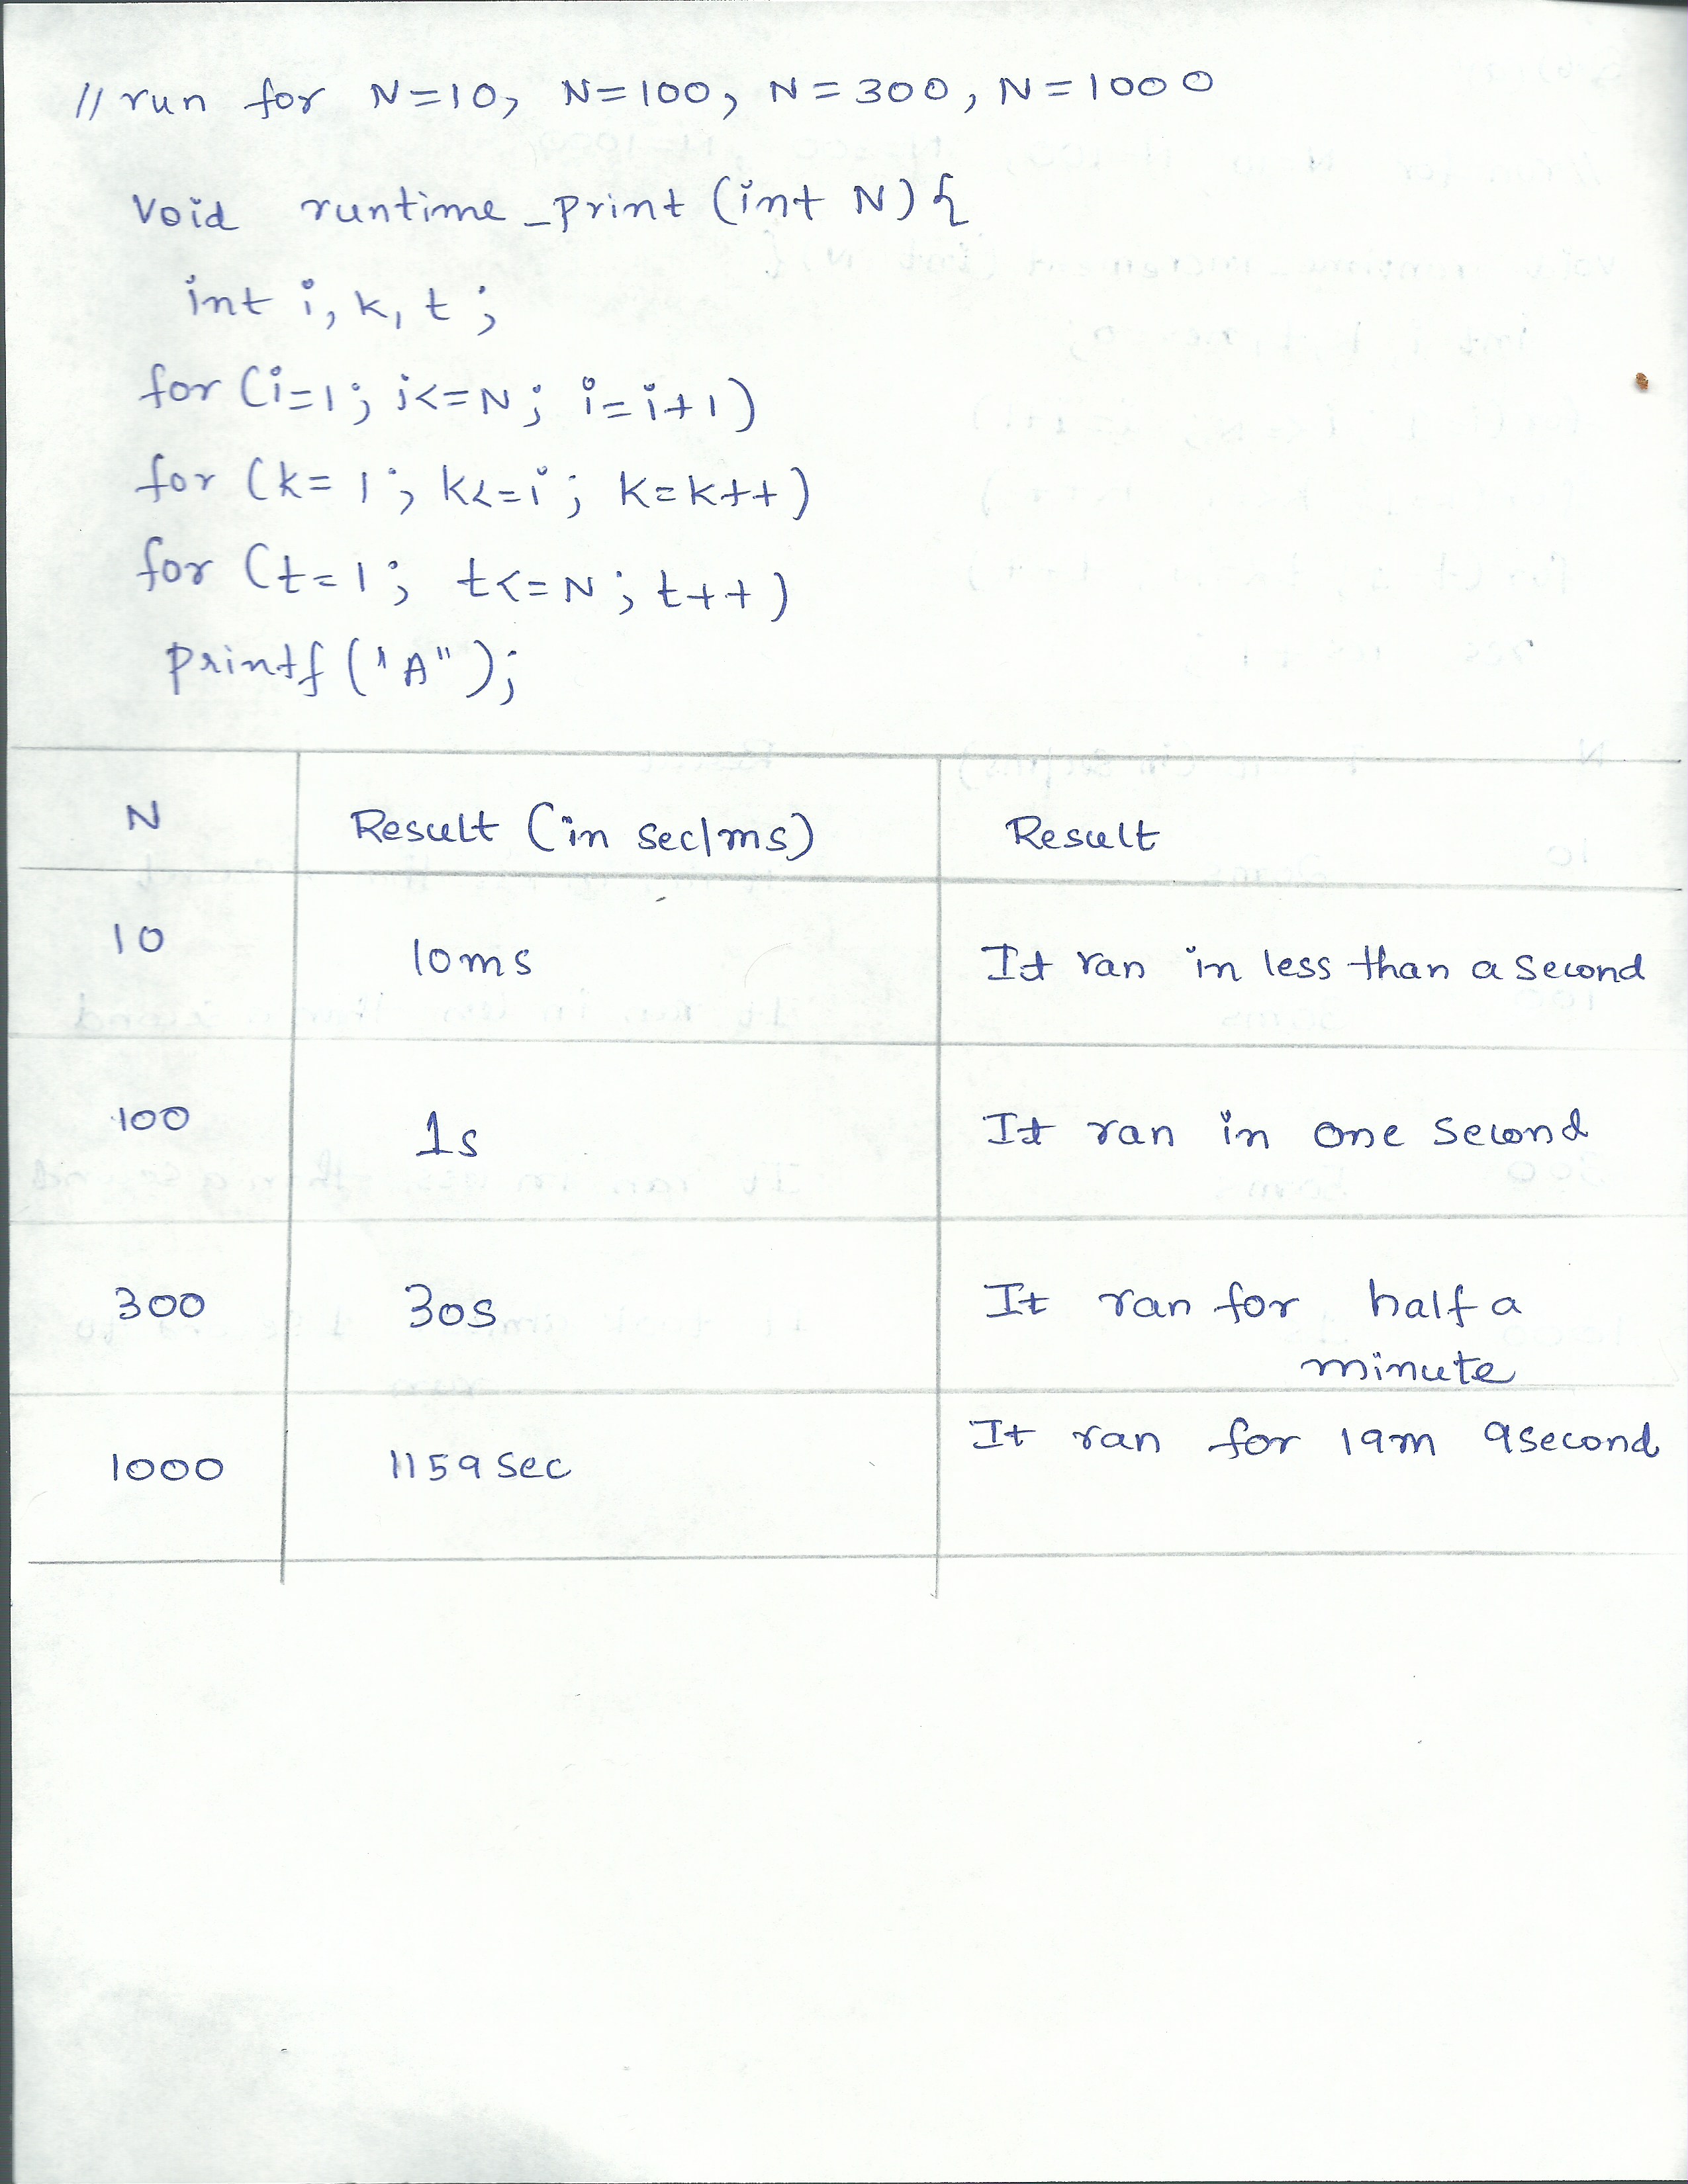 // run for N=10, N=100, N=300, N=1000
void runtime_print (int N){
int i, k, t;
for (i=1; i<=N; i=i+1)
for (k=1; k<=i; k=k++)
for (t=1; t<=N; t++)
printf ('A");
N Result (in sec/ms) Result
10 10ms It ran in less than a second
100 1s It ran in one second
300 30s It ran for half a
minute
1000 1159 sec It ran for 19m 9second